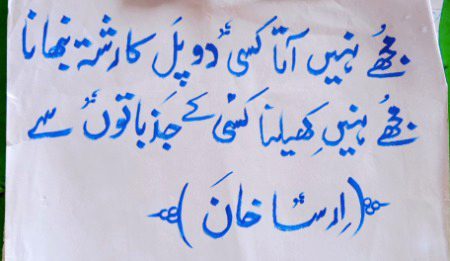 مجھے نہیں آتا کسی دو پل کا رشتہ نبھانا
مجھے نہیں کھیلنا کسی کے جذباتوں سے
(اِرسا خانَ)